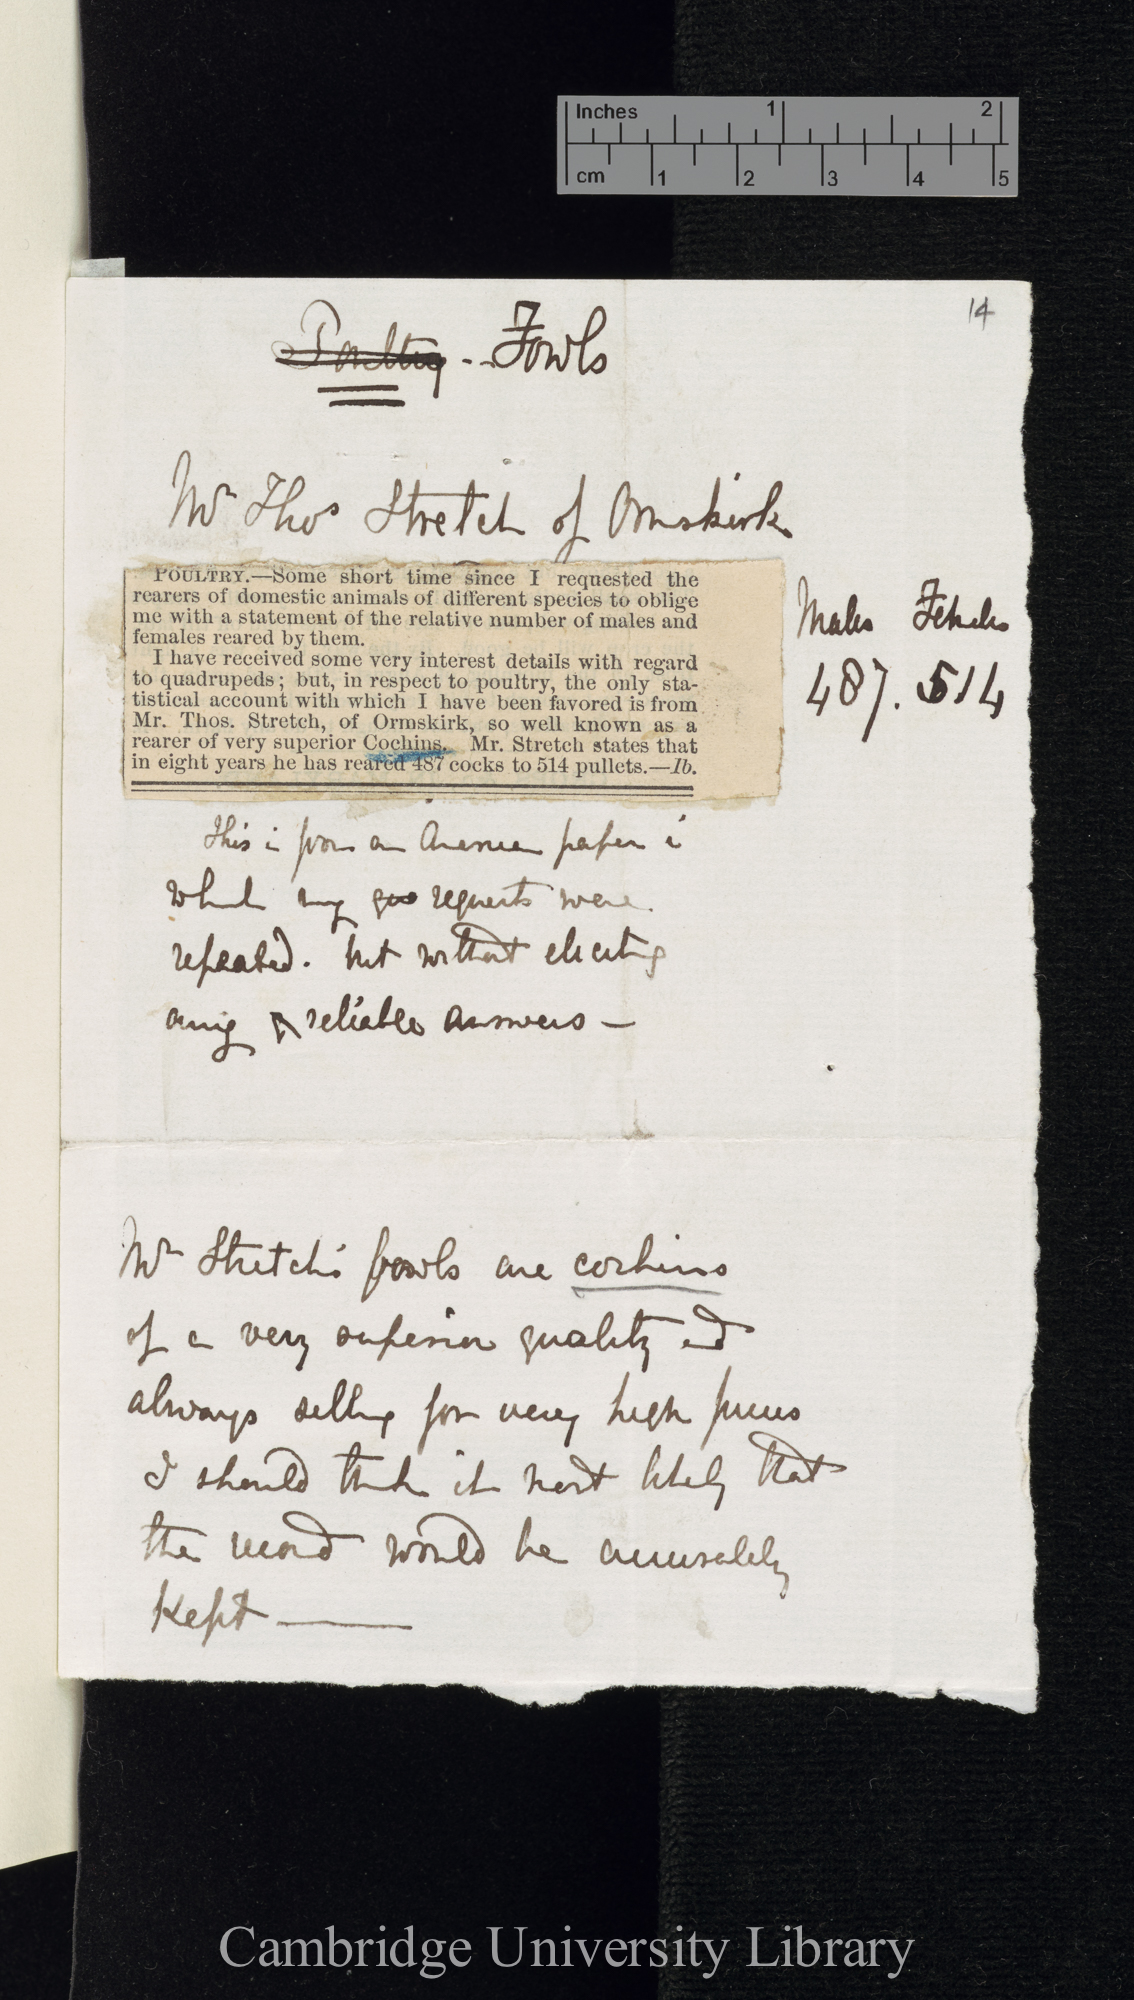 Inches 1 2
cm 1 2 3 4 5
14
Poultry - Fowls
Mr Thos Stretch of Ormskirk
POULTRY.—Some short time since I requested the
rearers of domestic animals of different species to oblige
me with a statement of the relative number of males and
females reared by them.
I have received some very interest details with regard
to quadrupeds; but, in respect to poultry, the only sta-
tistical account with which I have been favored is from
Mr. Thos. Stretch, of Ormskirk, so well known as a
rearer of very superior Cochins. Mr. Stretch states that
in eight years he has reared 487 cocks to 514 pullets.—Ib.
Males Females
487. 514
This is from an American paper in
which my requests were
repeated. but without eliciting
any reliable answers —
Mr Stretch's fowls are cochins
of a very superior quality and
always selling for very high prices
I should think it most likely that
the record would be accurately
kept —
Cambridge University Library